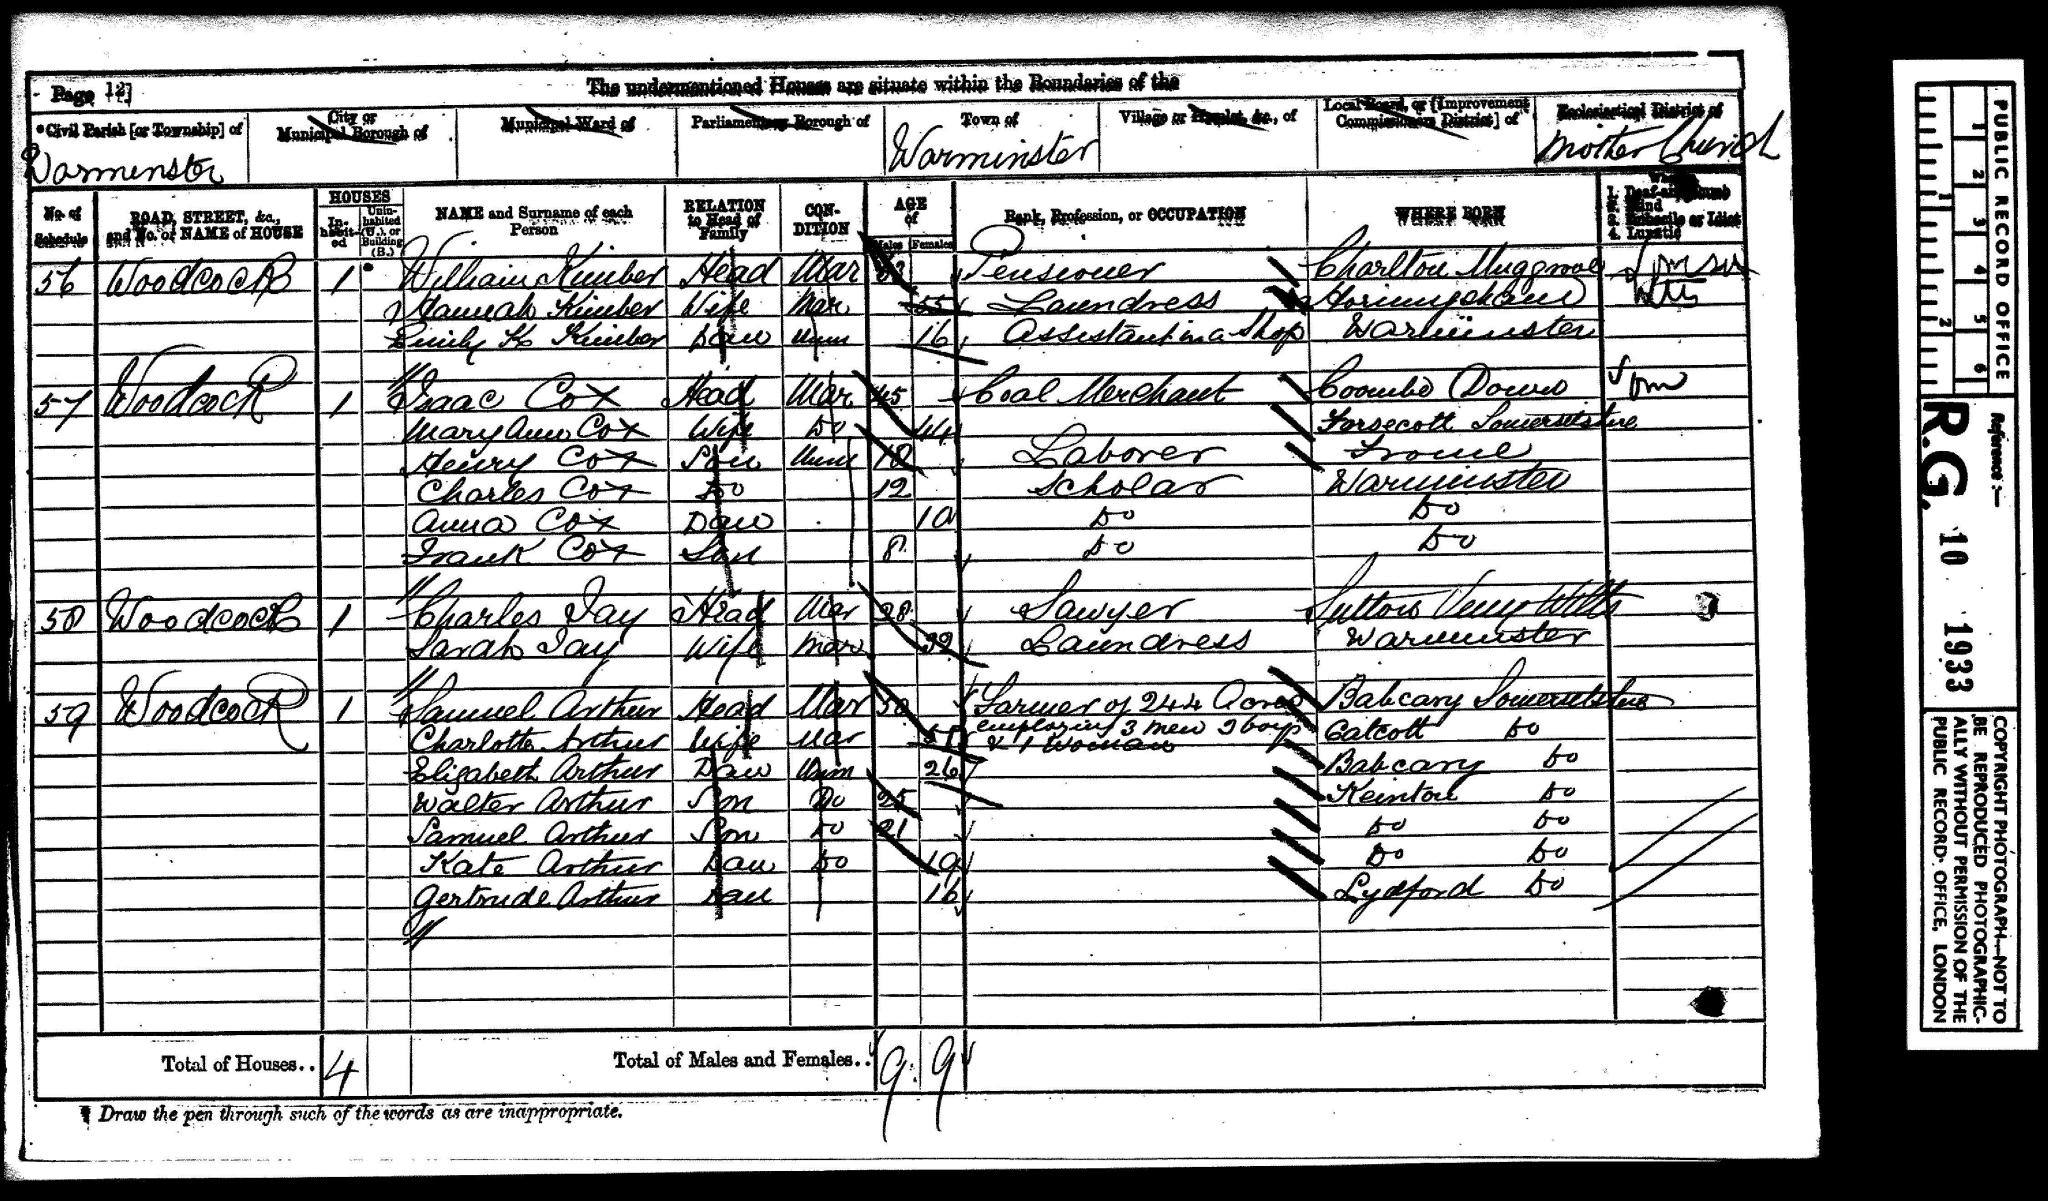 Page 12]
The undermentioned Houses are situate within the Boundaries of the
*Civil Parish [or Township] of
City or Municipal Borough of
Municipal Ward of
Parliamentary Borough of
Town of
Village or Hamlet, &c., of
Local Board, or [Improvement Commissioners District] of
Ecclesiastical District of
Warminster
Warminster
Mother Church
No. of Schedule
ROAD, STREET, &c., and No. or NAME of HOUSE
HOUSES
In-habit-ed
Unin-habited (U.), or Building (B.)
NAME and Surname of each Person
RELATION to Head of Family
CON-DITION
AGE of
Males
Females
Rank, Profession, or OCCUPATION
WHERE BORN
1. Deaf-and-Dumb
2. Blind
3. Imbecile or Idiot
4. Lunatic
56 Woodcock 1 William Kimber Head Mar Pensioner Charlton Musgrove
Hannah Kimber Wife Mar 55 Laundress Horningsham Wilts
Emily K Kimber Daw Unm 16 Assistant in a Shop Warminster
57 Woodcock 1 Isaac Cox Head Mar 45 Coal Merchant Coombe Down Som
Mary Ann Cox Wife Do 44 Forscott Somersetshire
Henry Cox Son Unm 18 Laborer Frome
Charles Cox Do 12 Scholar Warminster
Anna Cox Daw 10 Do Do
Frank Cox Son 8 Do Do
58 Woodcock 1 Charles Jay Head Mar 38 Sawyer Sutton Veny Wilts
Sarah Jay Wife Mar 39 Laundress Warminster
59 Woodcock 1 Samuel Arthur Head Mar 50 Farmer of 244 Acres Babcary Somersetshire
employing 3 men 2 boys
Charlotte Arthur Wife Mar & 1 Woman Catcott Do
Elizabeth Arthur Daw Unm 26 Babcary Do
Walter Arthur Son Do 25 Keinton Do
Samuel Arthur Son Do 21 Do Do
Kate Arthur Daw Do 19 Do Do
Gertrude Arthur Dau 16 Lydford Do
Total of Houses.. 4 Total of Males and Females.. 9 9
¶ Draw the pen through such of the words as are inappropriate.
1 2 3 4 5 6
1 2
PUBLIC RECORD OFFICE
Reference :—
R.G. 10 1933
COPYRIGHT PHOTOGRAPH—NOT TO
BE REPRODUCED PHOTOGRAPHIC-
ALLY WITHOUT PERMISSION OF THE
PUBLIC RECORD OFFICE, LONDON